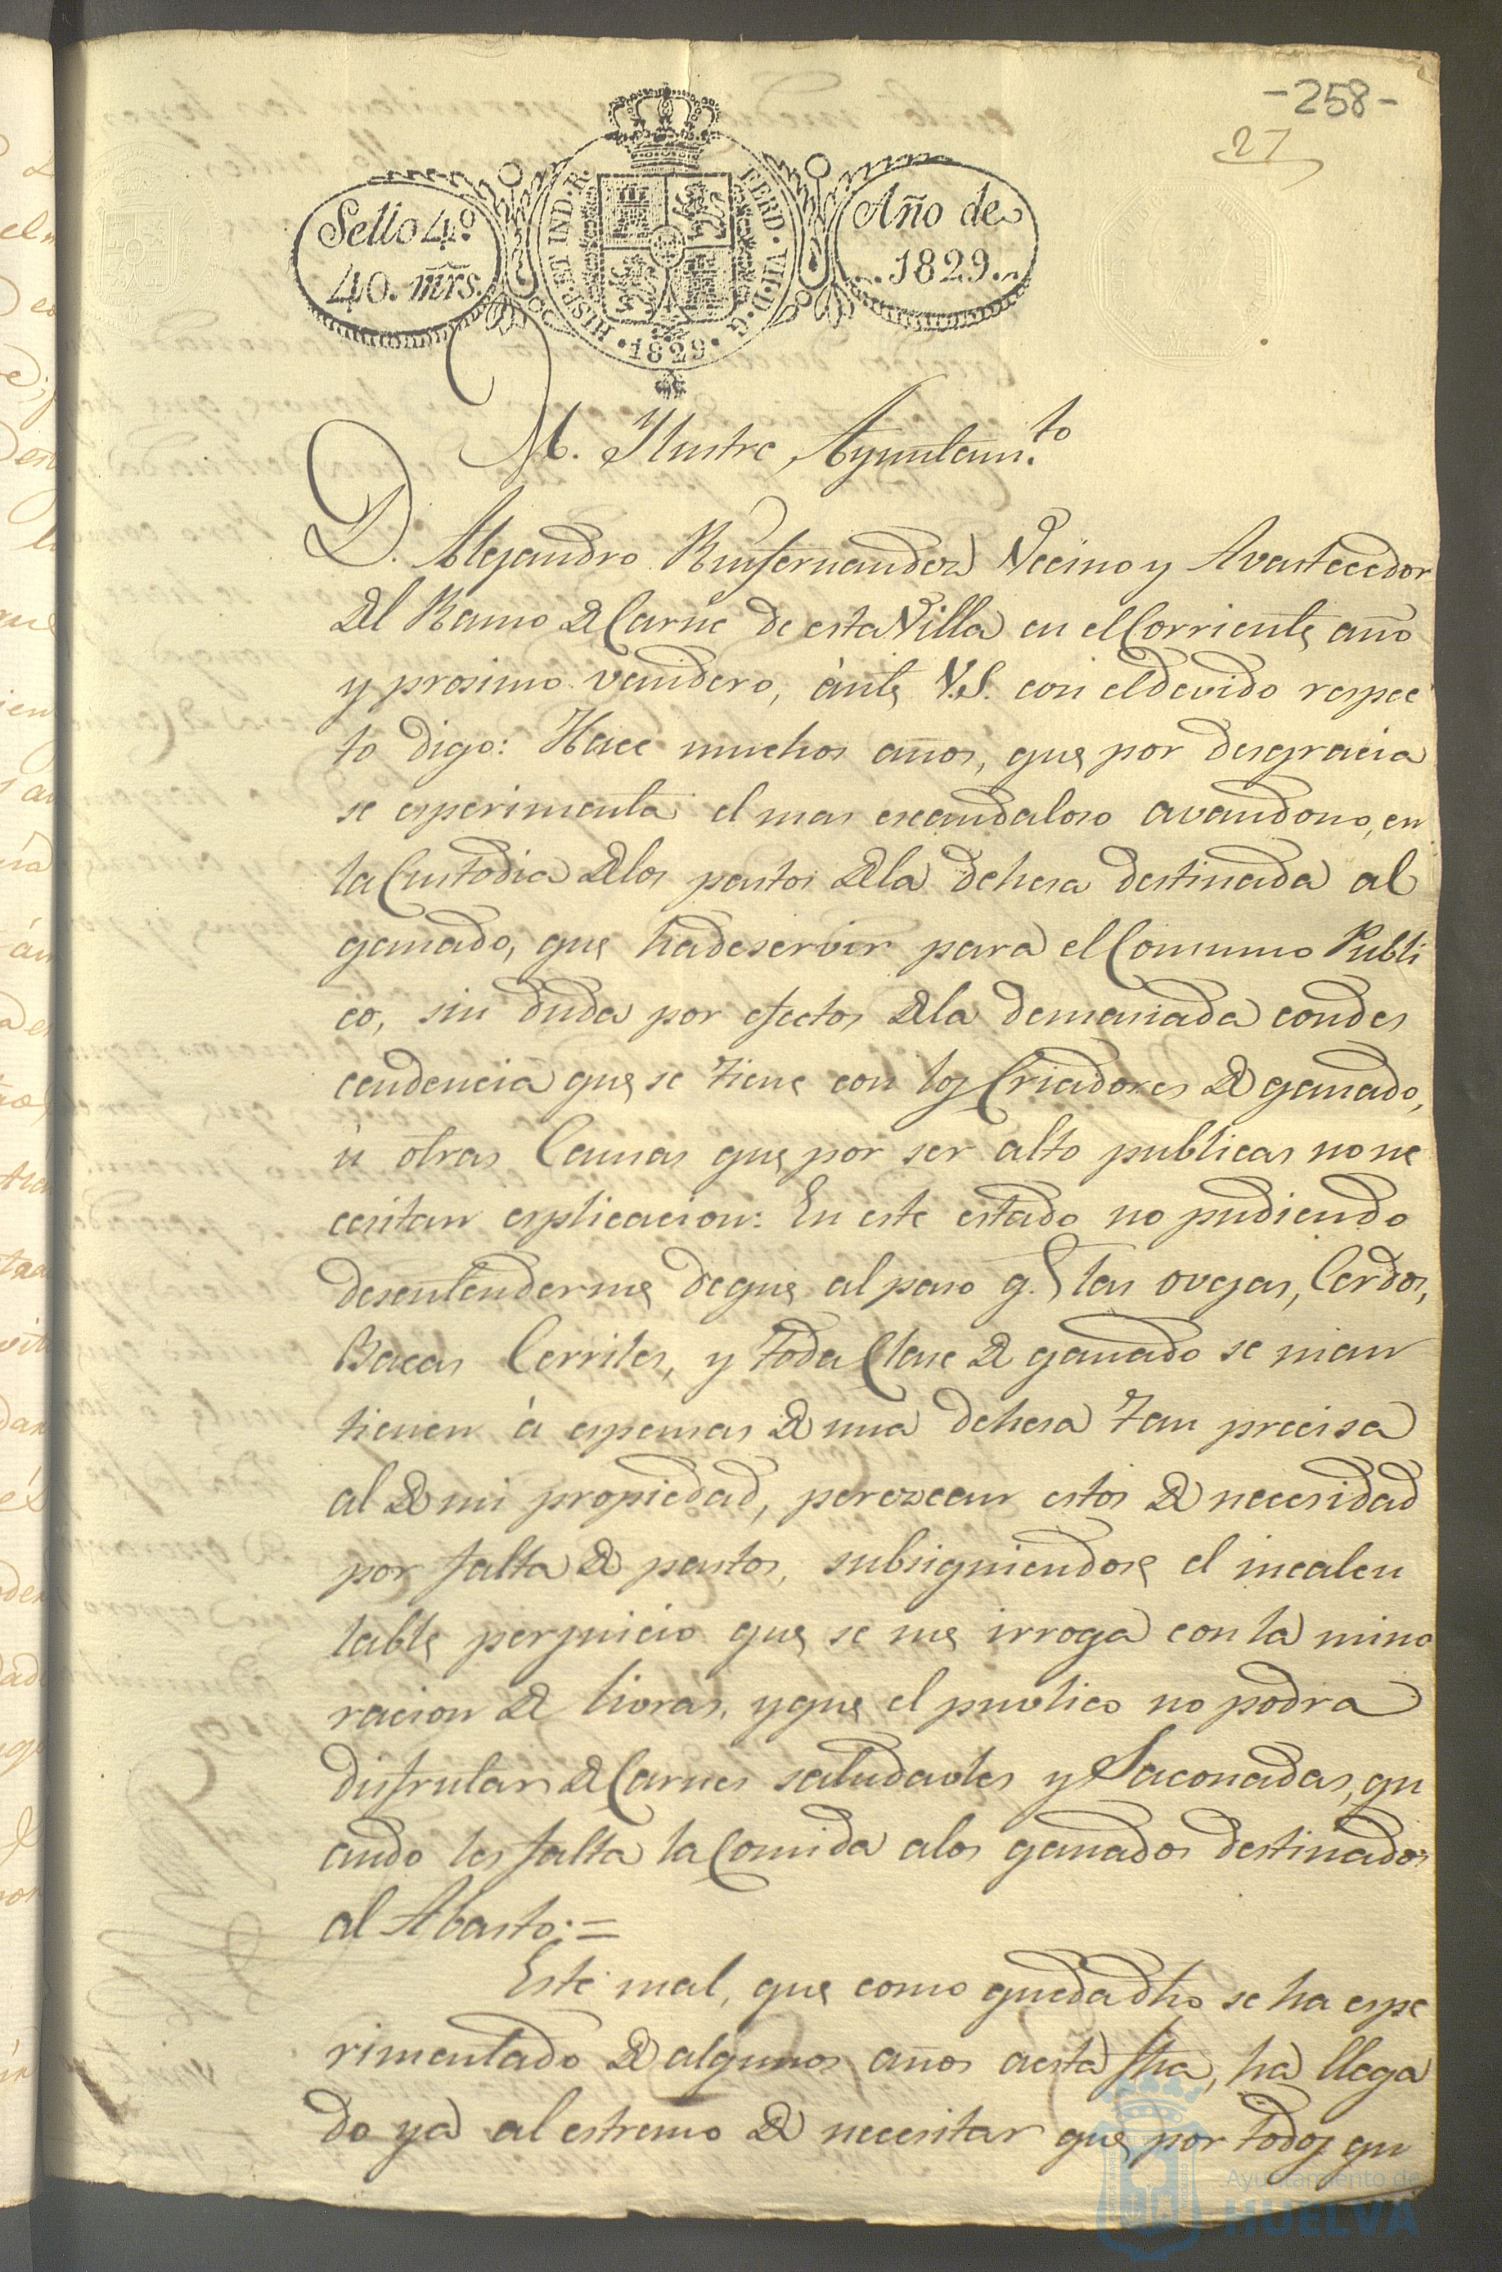 -258-
27
Sello 4º
40. mrs.
HISP. ET IND. R. FERD. VII. D. G.
· 1829 ·
Año de
1829.
M. Ylustre Ayuntam.to
D. Alejandro Ruifernandez Vecino y Avastecedor
del Ramo de Carne de esta Villa en el Corriente año
y prosimo venidero, ánte V.S. con el devido respec
to digo: Hace muchos años, que por desgracia
se esperimenta el mas escandaloso avandono, en
la Custodia de los pastos de la dehesa destinada al
ganado, que ha de servir para el Consumo Publi
co, sin duda por efectos de la demasiada condes
cendencia que se tiene con los Criadores de ganado,
ù otras Causas que por ser alto publicas no ne
cesitan esplicacion: En este estado no pudiendo
desentenderme de que al paso q.e las ovejas, Cerdos,
Bacas Cerriles, y toda Clase de ganado se man
tienen à espensas de una dehesa tan precisa
al de mi propiedad, perezcan estos de necesidad
por falta de pastos, subsiguiendose el incalcu
lable perjuicio que se me irroga con la mino
racion de livras, y que el puvlico no podra
disfrutar de Carnes saludavles y Saconadas, qu
ando les falta la Comida a los ganados destinados
al Abasto: =
Este mal, que como queda dho se ha espe
rimentado de algunos años a esta fha, ha llega
do ya al estremo de necesitar que por todos qu
Ayuntamiento de
HUELVA